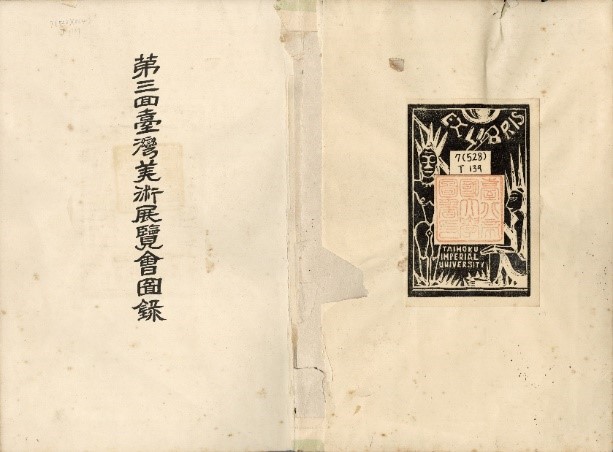 第三回臺灣美術展覽會圖錄
EX LIBRIS
7(528)
T 139
TAIHOKU
IMPERIAL
UNIVERSITY